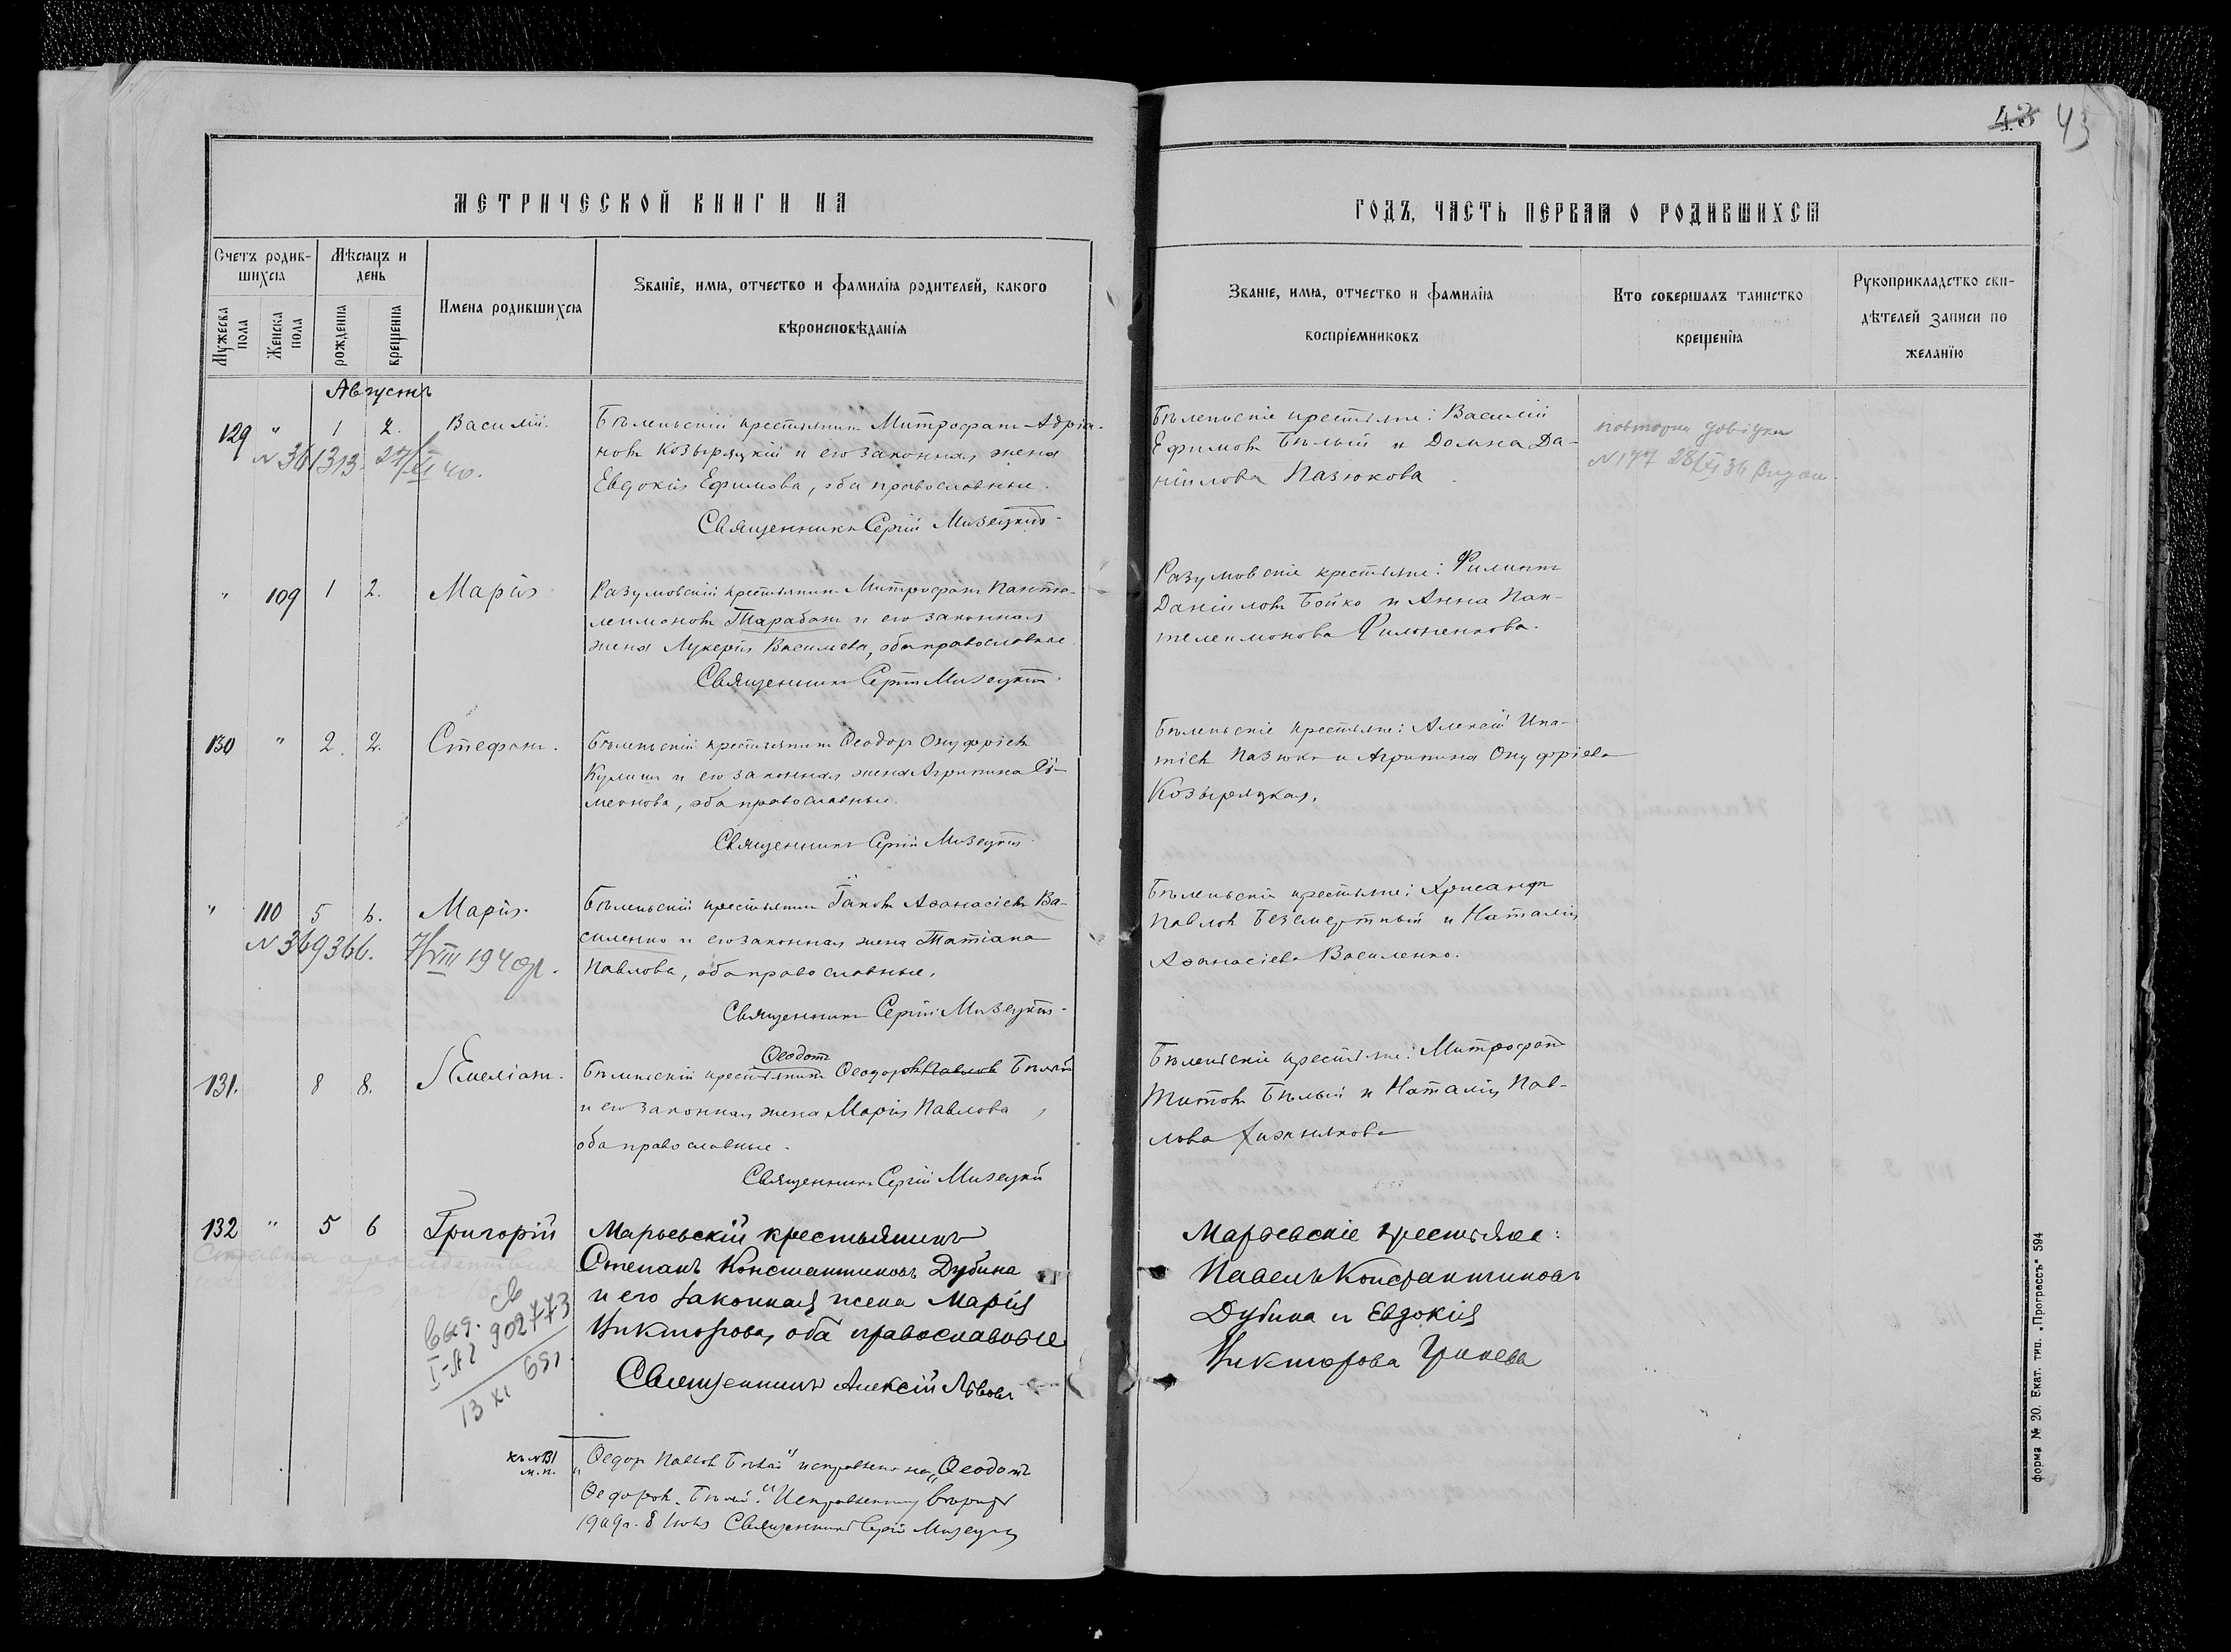 43 43
МЕТРИЧЕСКОЙ КНИГИ НА
ГОДЪ, ЧАСТЬ ПЕРВАЯ О РОДИВШИХСЯ
Счетъ родившихся
Мужеска пола
Женска пола
Мѣсяцъ и день
рожденія
крещенія
Имена родившихся
Званіе, имя, отчество и фамилія родителей, какого
вѣроисповѣданія
Званіе, имя, отчество и фамилія
воспріемниковъ
Кто совершалъ таинство
крещенія
Рукоприкладство сви-
дѣтелей записи по
желанію
Августъ
129 " 1 2. Василій.
N 361313 27/XI 40.
Бѣленьскій крестьянинъ Митрофанъ Адріа-
новъ Козыряцкій и его законная жена
Евдокія Ефимова, оба православные.
Священникъ Сергій Мизецкій
Бѣленьскіе крестьяне: Василій
Ефимовъ Бѣлый и Домна Да-
ніилова Пазюкова
N 177 28/XI 36
" 109 1 2. Марія
Разумовскій крестьянинъ Митрофанъ Панте-
леимоновъ Тарабанъ и его законная
жена Лукерія Васильева, оба православные.
Священникъ Сергій Мизецкій.
Разумовскіе крестьяне: Филиппъ
Даніиловъ Бойко и Анна Пан-
телеимонова Филоненкова.
130 " 2. 2. Стефанъ.
Бѣленьскій крестьянинъ Ѳеодоръ Онуфріевъ
Кулишъ и его законная жена Агрипина Сѵ-
меонова, оба православные.
Священникъ Сергій Мизецкій
Бѣленьскіе крестьяне: Алексій Ипа-
тіевъ Пазюкъ и Агрипина Онуфріева
Козыряцкая.
" 110 5 6. Марія.
N 369366. 7/VIII 1940г.
Бѣленьскій крестьянинъ Іаковъ Аѳанасіевъ Ва-
силенко и его законная жена Татіана
Павлова, оба православные.
Священникъ Сергій Мизецкій
Бѣленьскіе крестьяне: Хрисанфъ
Павловъ Безсмертный и Наталія
Аѳанасіева Василенко.
131. 8 8. Емеліанъ.
Ѳеодотъ
Бѣленьскій крестьянинъ Ѳеодоровъ Павлов Бѣлый
и его законная жена Марія Павлова,
оба православные.
Священникъ Сергій Мизецкій
Бѣленьскіе крестьяне: Митрофанъ
Титовъ Бѣлый и Наталія Пав-
лова
132 " 5 6 Григорій
Марьевскій крестьянинъ
Степанъ Константиновъ Дубина
и его законная жена Марія
Викторова, оба православные
Священникъ Алексій Львовъ
Марьевскіе крестьяне:
Павелъ Константиновъ
Дубина и Евдокія
Викторова
выд. св
I-АГ 902773
13 XI 65г.
къ №131
м. п.
"Ѳедоръ Павловъ Бѣлый" исправлено на "Ѳеодотъ
Ѳедоровъ Бѣлый." Исправленному вѣрить
1909г. 8 Священникъ Сергій Мизецкій
форма № 20. Екат. тип. „Прогрессъ" 594